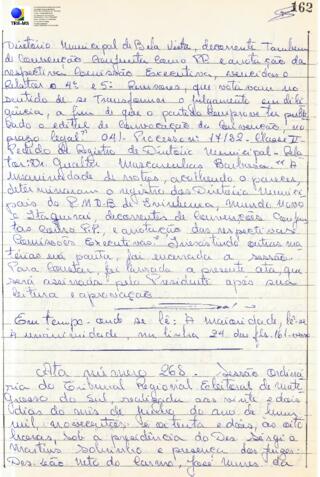 162
TRE-MS
Diretório Municipal de Bela Vista, decorrente também
de Convenção Conjunta com o PP e anotação da
respectiva Comissão Executiva, vencidos o
Relator e os Revisores, que votavam no
sentido de se transformar o julgamento em dili
gência, a fim de que o partido comprove ter publi
cado o edital de convocação da Convenção, no
prazo legal". 04). Processo nº 17/82 - Classe II -
Pedido de Registro de Diretório Municipal - Rela
tor: Dr. Gualter Mascarenhas Barbosa. "A
unanimidade de votos, acolhendo o parecer,
determinaram o registro dos Diretórios Munici
pais do P.M.D.B de Ivinhema, Mundo Novo
e Itaquiraí, decorrentes de Convenções Conjun
tas com o P.P. e anotação das respectivas
Comissões Executivas". Inexistindo outras ma
térias em pauta, foi encerrada a sessão.
Para constar, foi lavrada a presente ata, que
será assinada pelo Presidente após sua
leitura e aprovação.
Em tempo - onde se lê: A maioridade, lê-se
A unanimidade, na linha 24 das fls. 161-verso
Ata número 268. Sessão Ordiná
ria do Tribunal Regional Eleitoral de Mato
Grosso do Sul, realizada aos vinte e dois
dias do mês de do ano de hum
mil, novecentos e oitenta e dois, às oito
horas, sob a presidência do Des. Sérgio
Martins Sobrinho e presença dos juízes:
Des. João Neto do Carmo, José Nunes da